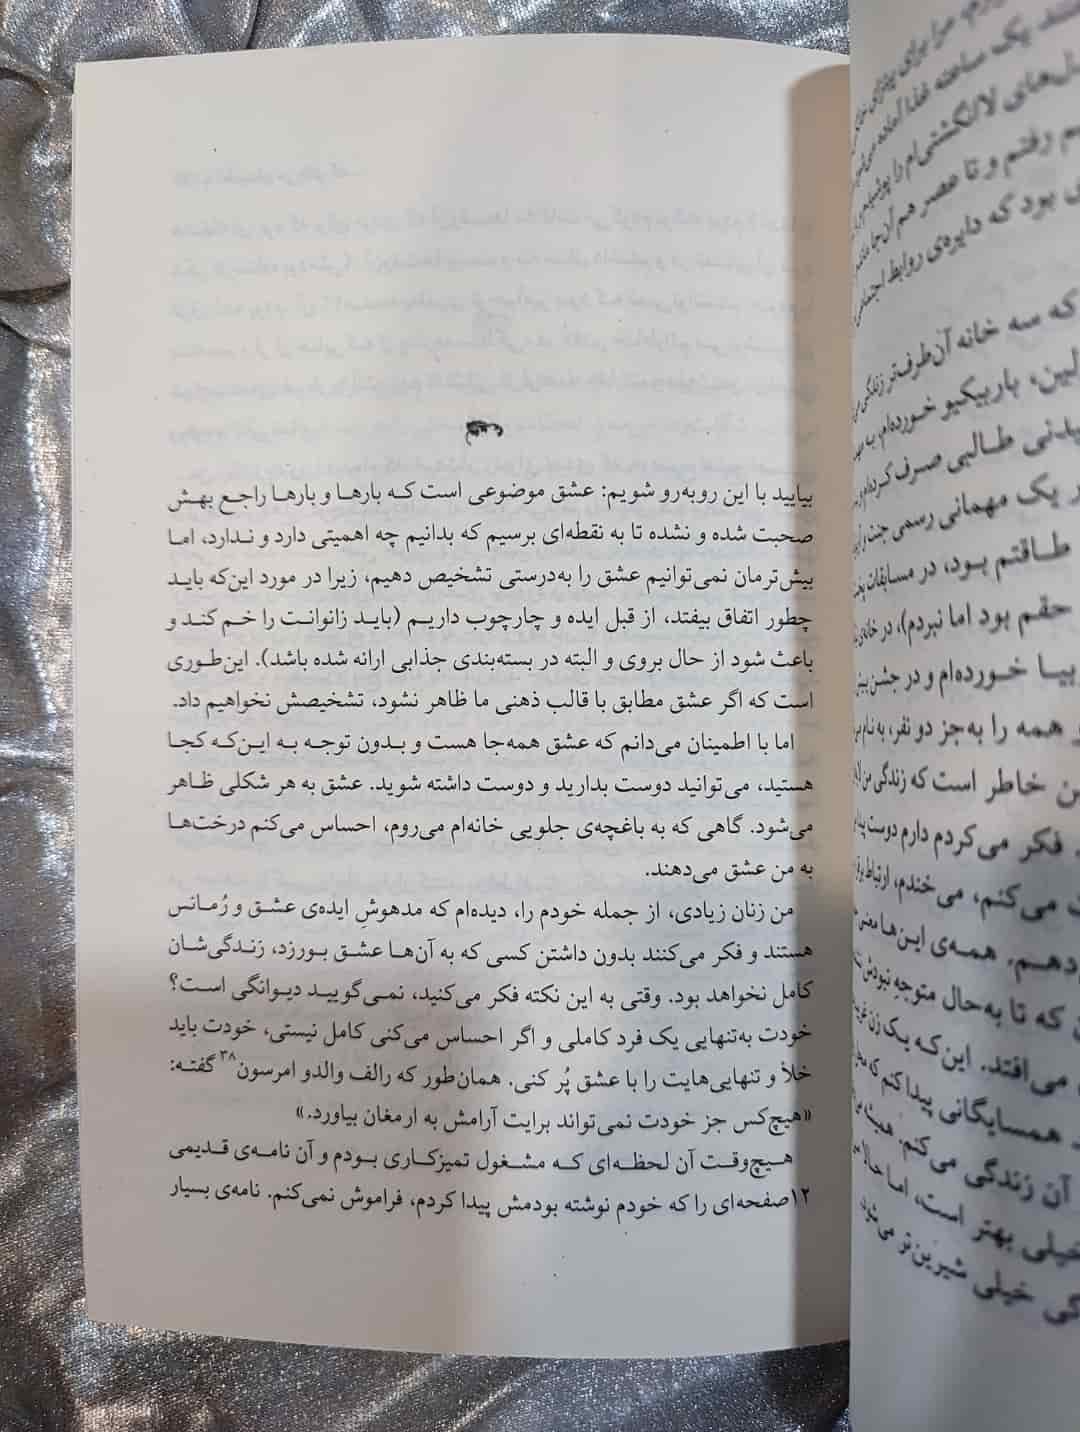 عشق
بیایید با این روبه‌رو شویم: عشق موضوعی است که بارها و بارها راجع بهش
صحبت شده و نشده تا به نقطه‌ای برسیم که بدانیم چه اهمیتی دارد و ندارد، اما
بیش‌ترمان نمی‌توانیم عشق را به‌درستی تشخیص دهیم، زیرا در مورد این‌که باید
چطور اتفاق بیفتد، از قبل ایده و چارچوب داریم (باید زانوانت را خم کند و
باعث شود از حال بروی و البته در بسته‌بندی جذابی ارائه شده باشد). این‌طوری
است که اگر عشق مطابق با قالب ذهنی ما ظاهر نشود، تشخیصش نخواهیم داد.
اما با اطمینان می‌دانم که عشق همه‌جا هست و بدون توجه به این‌که کجا
هستید، می‌توانید دوست بدارید و دوست داشته شوید. عشق به هر شکلی ظاهر
می‌شود. گاهی که به باغچه‌ی جلویی خانه‌ام می‌روم، احساس می‌کنم درخت‌ها
به من عشق می‌دهند.
من زنان زیادی، از جمله خودم را، دیده‌ام که مدهوشِ ایده‌ی عشق و رُمانس
هستند و فکر می‌کنند بدون داشتن کسی که به آن‌ها عشق بورزد، زندگی‌شان
کامل نخواهد بود. وقتی به این نکته فکر می‌کنید، نمی‌گویید دیوانگی است؟
خودت به‌تنهایی یک فرد کاملی و اگر احساس می‌کنی کامل نیستی، خودت باید
خلأ و تنهایی‌هایت را با عشق پُر کنی. همان‌طور که رالف والدو امرسون۳۸ گفته:
«هیچ‌کس جز خودت نمی‌تواند برایت آرامش به ارمغان بیاورد.»
هیچ‌وقت آن لحظه‌ای که مشغول تمیزکاری بودم و آن نامه‌ی قدیمی
۱۲صفحه‌ای را که خودم نوشته بودمش پیدا کردم، فراموش نمی‌کنم. نامه‌ی بسیار
مرا برای
یک ساعته غذا آماده
لاک‌پشتی‌ام را پوشیدم و
رفتم و تا عصر هم آن‌جا
بود که دایره‌ی روابط
که سه خانه آن‌طرف‌تر زندگی
باربیکیو خورده‌ام، به
طالبی صرف کرده‌ام و
یک مهمانی رسمی جنت و
طاقتم بود، در مسابقات
حقم بود اما نبردم)، در خانه‌ی
خورده‌ام و در جشن
همه را به‌جز دو نفر، به نام
خاطر است که زندگی من
فکر می‌کردم دارم دوست
می‌کنم، می‌خندم، ارتباط
همه‌ی این‌ها معنی
که تا به‌حال متوجه نبودش
می‌افتد. این‌که یک زن
همسایگانی پیدا کنم که
آن زندگی می‌کنم.
خیلی بهتر است، اما حالا
خیلی شیرین‌تر می‌شود.